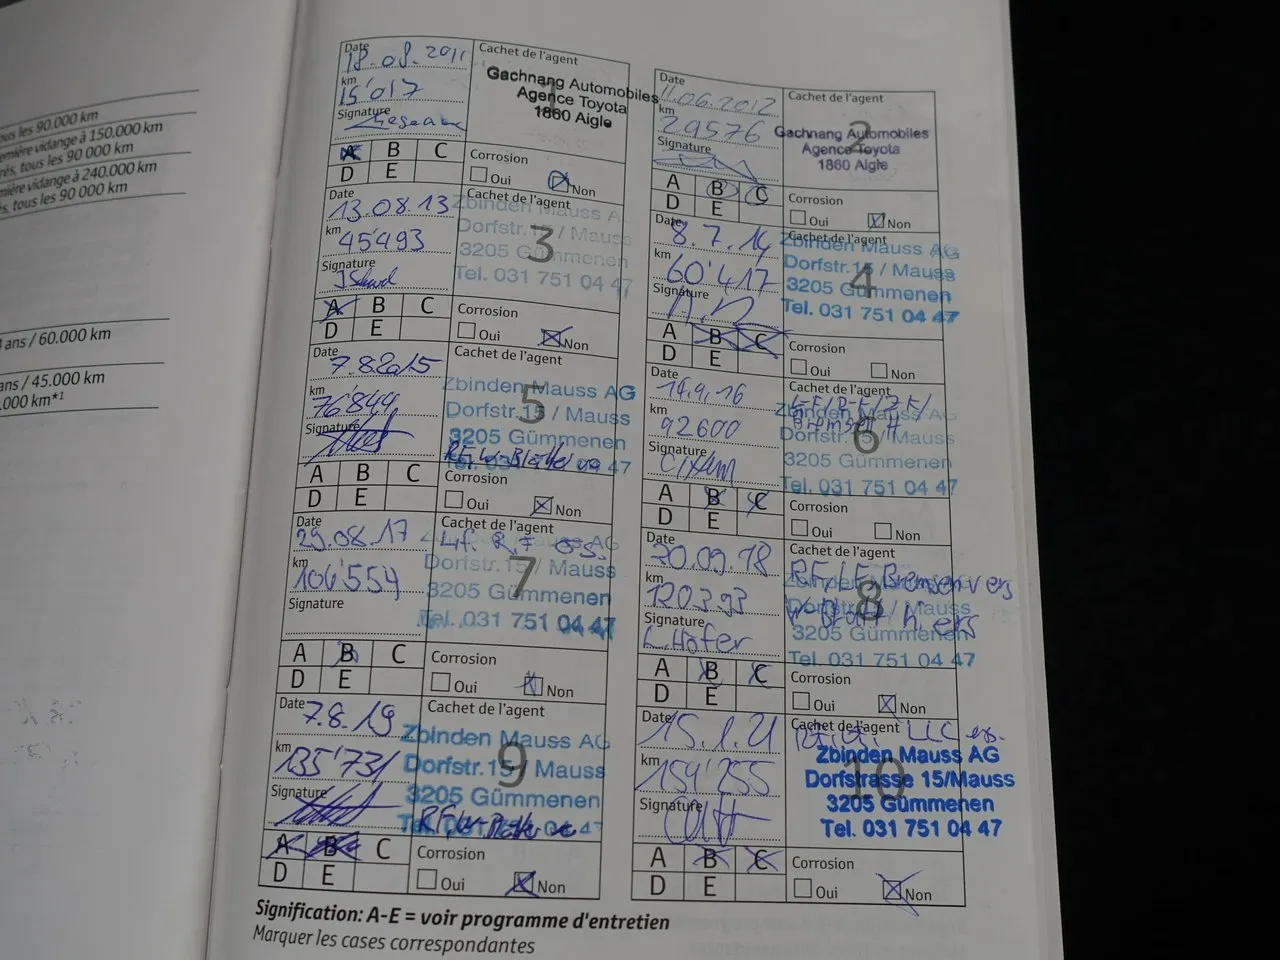 ous les 90.000 km
emière vidange à 150.000 km
rés, tous les 90 000 km
mière vidange à 240.000 km
s, tous les 90 000 km
ans / 60.000 km
ans / 45.000 km
.000 km*1
Date
18.08.2011
km
15'017
Signature
Cachet de l'agent
1
Gachnang Automobiles
Agence Toyota
1860 Aigle
A B C
D E
Corrosion
Oui Non
Date
11.06.2012
km
29576
Signature
Cachet de l'agent
2
Gachnang Automobiles
Agence Toyota
1860 Aigle
A B C
D E
Corrosion
Oui Non
Date
13.08.13
km
45'493
Signature
Cachet de l'agent
3
Zbinden Mauss A
Dorfstr.15 / Mauss
3205 Gümmenen
Tel. 031 751 04 47
A B C
D E
Corrosion
Oui Non
Date
8.7.14
km
60'417
Signature
Cachet de l'agent
4
Zbinden Mauss AG
Dorfstr.15 / Mauss
3205 Gümmenen
Tel. 031 751 04 47
A B C
D E
Corrosion
Oui Non
Date
7.8.2015
km
76'844
Signature
Cachet de l'agent
5
Zbinden Mauss AG
Dorfstr.15 / Mauss
3205 Gümmenen
47
A B C
D E
Corrosion
Oui Non
Date
14.9.16
km
92600
Signature
Cachet de l'agent
6
Zbinden Mauss AG
Dorfstr.15 / Mauss
3205 Gümmenen
Tel. 031 751 04 47
A B C
D E
Corrosion
Oui Non
Date
29.08.17
km
106'554
Signature
Cachet de l'agent
7
AG
Dorfstr.15 / Mauss
3205 Gümmenen
Tel. 031 751 04 47
A B C
D E
Corrosion
Oui Non
Date
20.09.18
km
120393
Signature
L.Hofer
Cachet de l'agent
8
RF/LF Bremsen vers
3205 Gümmenen
Tel. 031 751 04 47
A B C
D E
Corrosion
Oui Non
Date
7.8.19
km
135'731
Signature
Cachet de l'agent
9
Zbinden Mauss AG
Dorfstr.15 / Mauss
3205 Gümmenen
A B C
D E
Corrosion
Oui Non
Date
15.1.21
km
154'255
Signature
Cachet de l'agent
10
Zbinden Mauss AG
Dorfstrasse 15/Mauss
3205 Gümmenen
Tel. 031 751 04 47
A B C
D E
Corrosion
Oui Non
Signification: A-E = voir programme d'entretien
Marquer les cases correspondantes